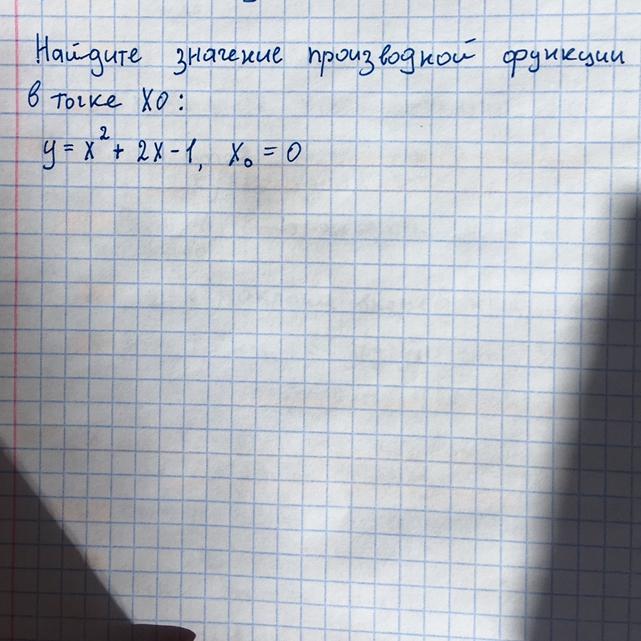 Найдите значение производной функции
в точке X0:
y = x² + 2x - 1, X₀ = 0